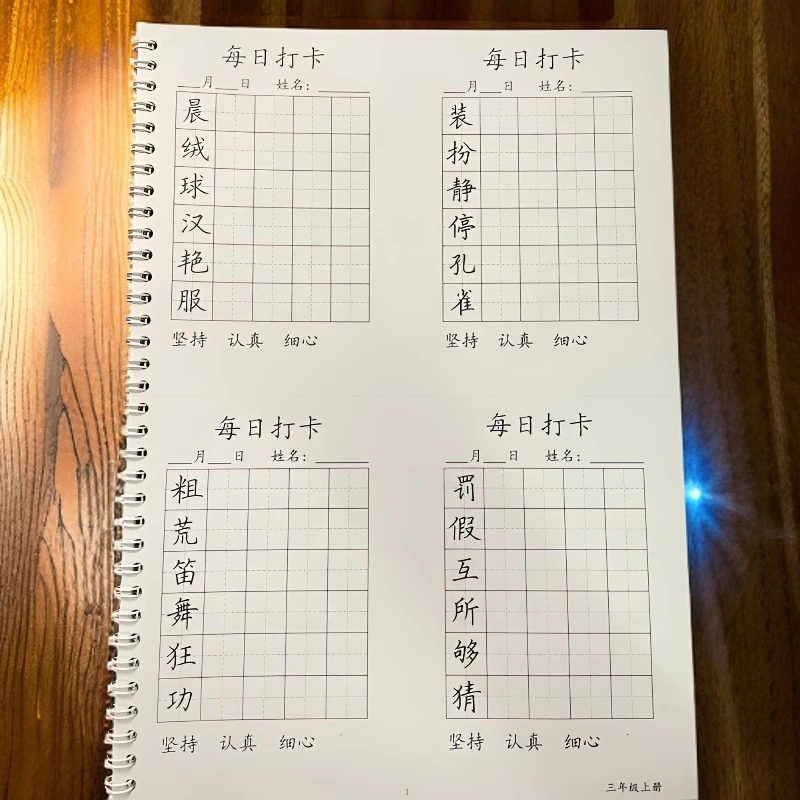 每日打卡
___月___日 姓名:______
晨
绒
球
汉
艳
服
坚持 认真 细心
每日打卡
___月___日 姓名:______
装
扮
静
停
孔
雀
坚持 认真 细心
每日打卡
___月___日 姓名:______
粗
荒
笛
舞
狂
功
坚持 认真 细心
每日打卡
___月___日 姓名:______
罚
假
互
所
够
猜
坚持 认真 细心
1
三年级上册